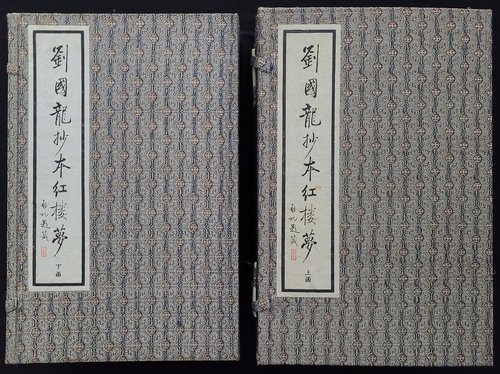 劉國龍抄本红楼夢
下函
劉國龍抄本红楼夢
上函